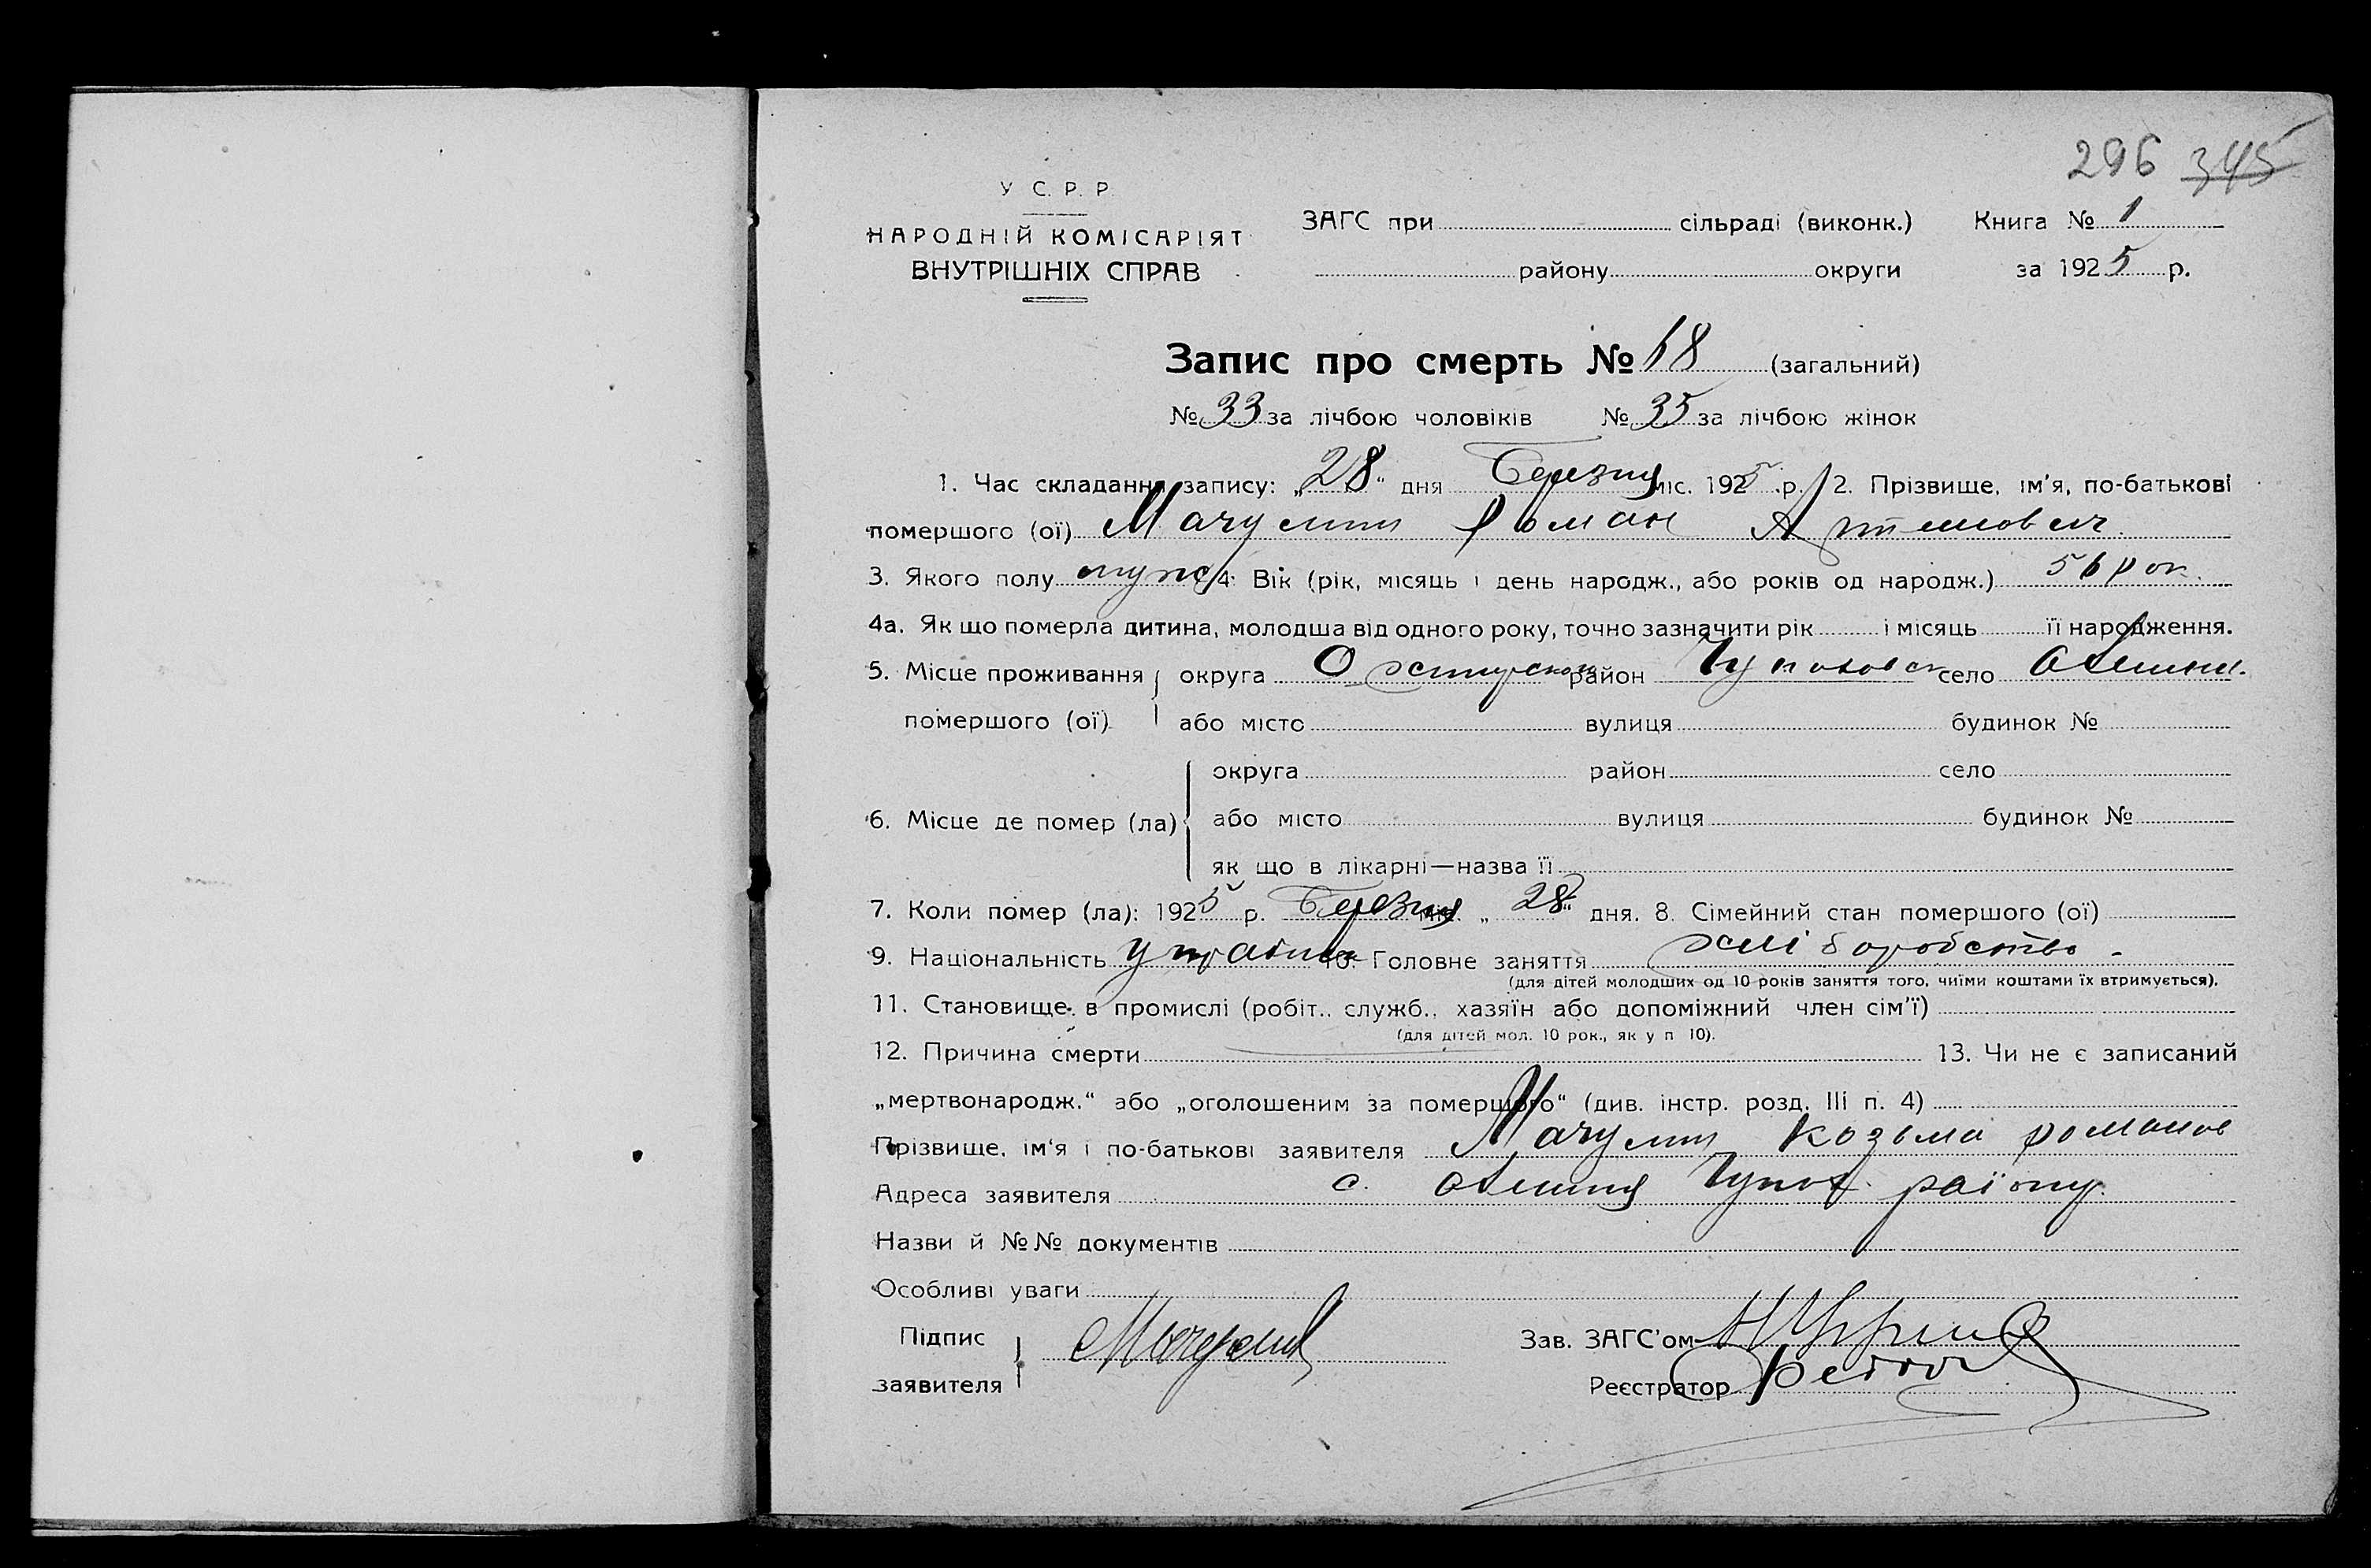 296 345
У С. Р. Р.
НАРОДНІЙ КОМІСАРІЯТ
ВНУТРІШНІХ СПРАВ
ЗАГС при сільраді (виконк.) Книга № 1
району округи за 1925 р.
Запис про смерть № 68 (загальний)
№ 33 за лічбою чоловіків № 35 за лічбою жінок
1. Час складання запису: „28“ дня Березня міс. 1925 р. 2. Прізвище, ім'я, по-батькові
помершого (ої) Роман
3. Якого полу муж 4. Вік (рік, місяць і день народж., або років од народж.) 56 рок.
4а. Як що померла дитина, молодша від одного року, точно зазначити рік і місяць її народження.
5. Місце проживання округа район село
помершого (ої) або місто вулиця будинок №
округа район село
6. Місце де помер (ла) або місто вулиця будинок №
як що в лікарні—назва її
7. Коли помер (ла): 1925 р. Березня міс. „28“ дня. 8. Сімейний стан помершого (ої)
9. Національність 10. Головне заняття хліборобство
(для дітей молодших од 10 років заняття того, чиїми коштами їх втримується).
11. Становище в промислі (робіт., служб., хазяїн або допоміжний член сім'ї)
(для дітей мол. 10 рок., як у п 10).
12. Причина смерти 13. Чи не є записаний
„мертвонародж.“ або „оголошеним за помершого“ (див. інстр. розд. III п. 4)
Прізвище, ім'я і по-батькові заявителя Козьма Романов
Адреса заявителя с. району
Назви й №№ документів
Особливі уваги
Підпис
заявителя
Зав. ЗАГС'ом
Реєстратор